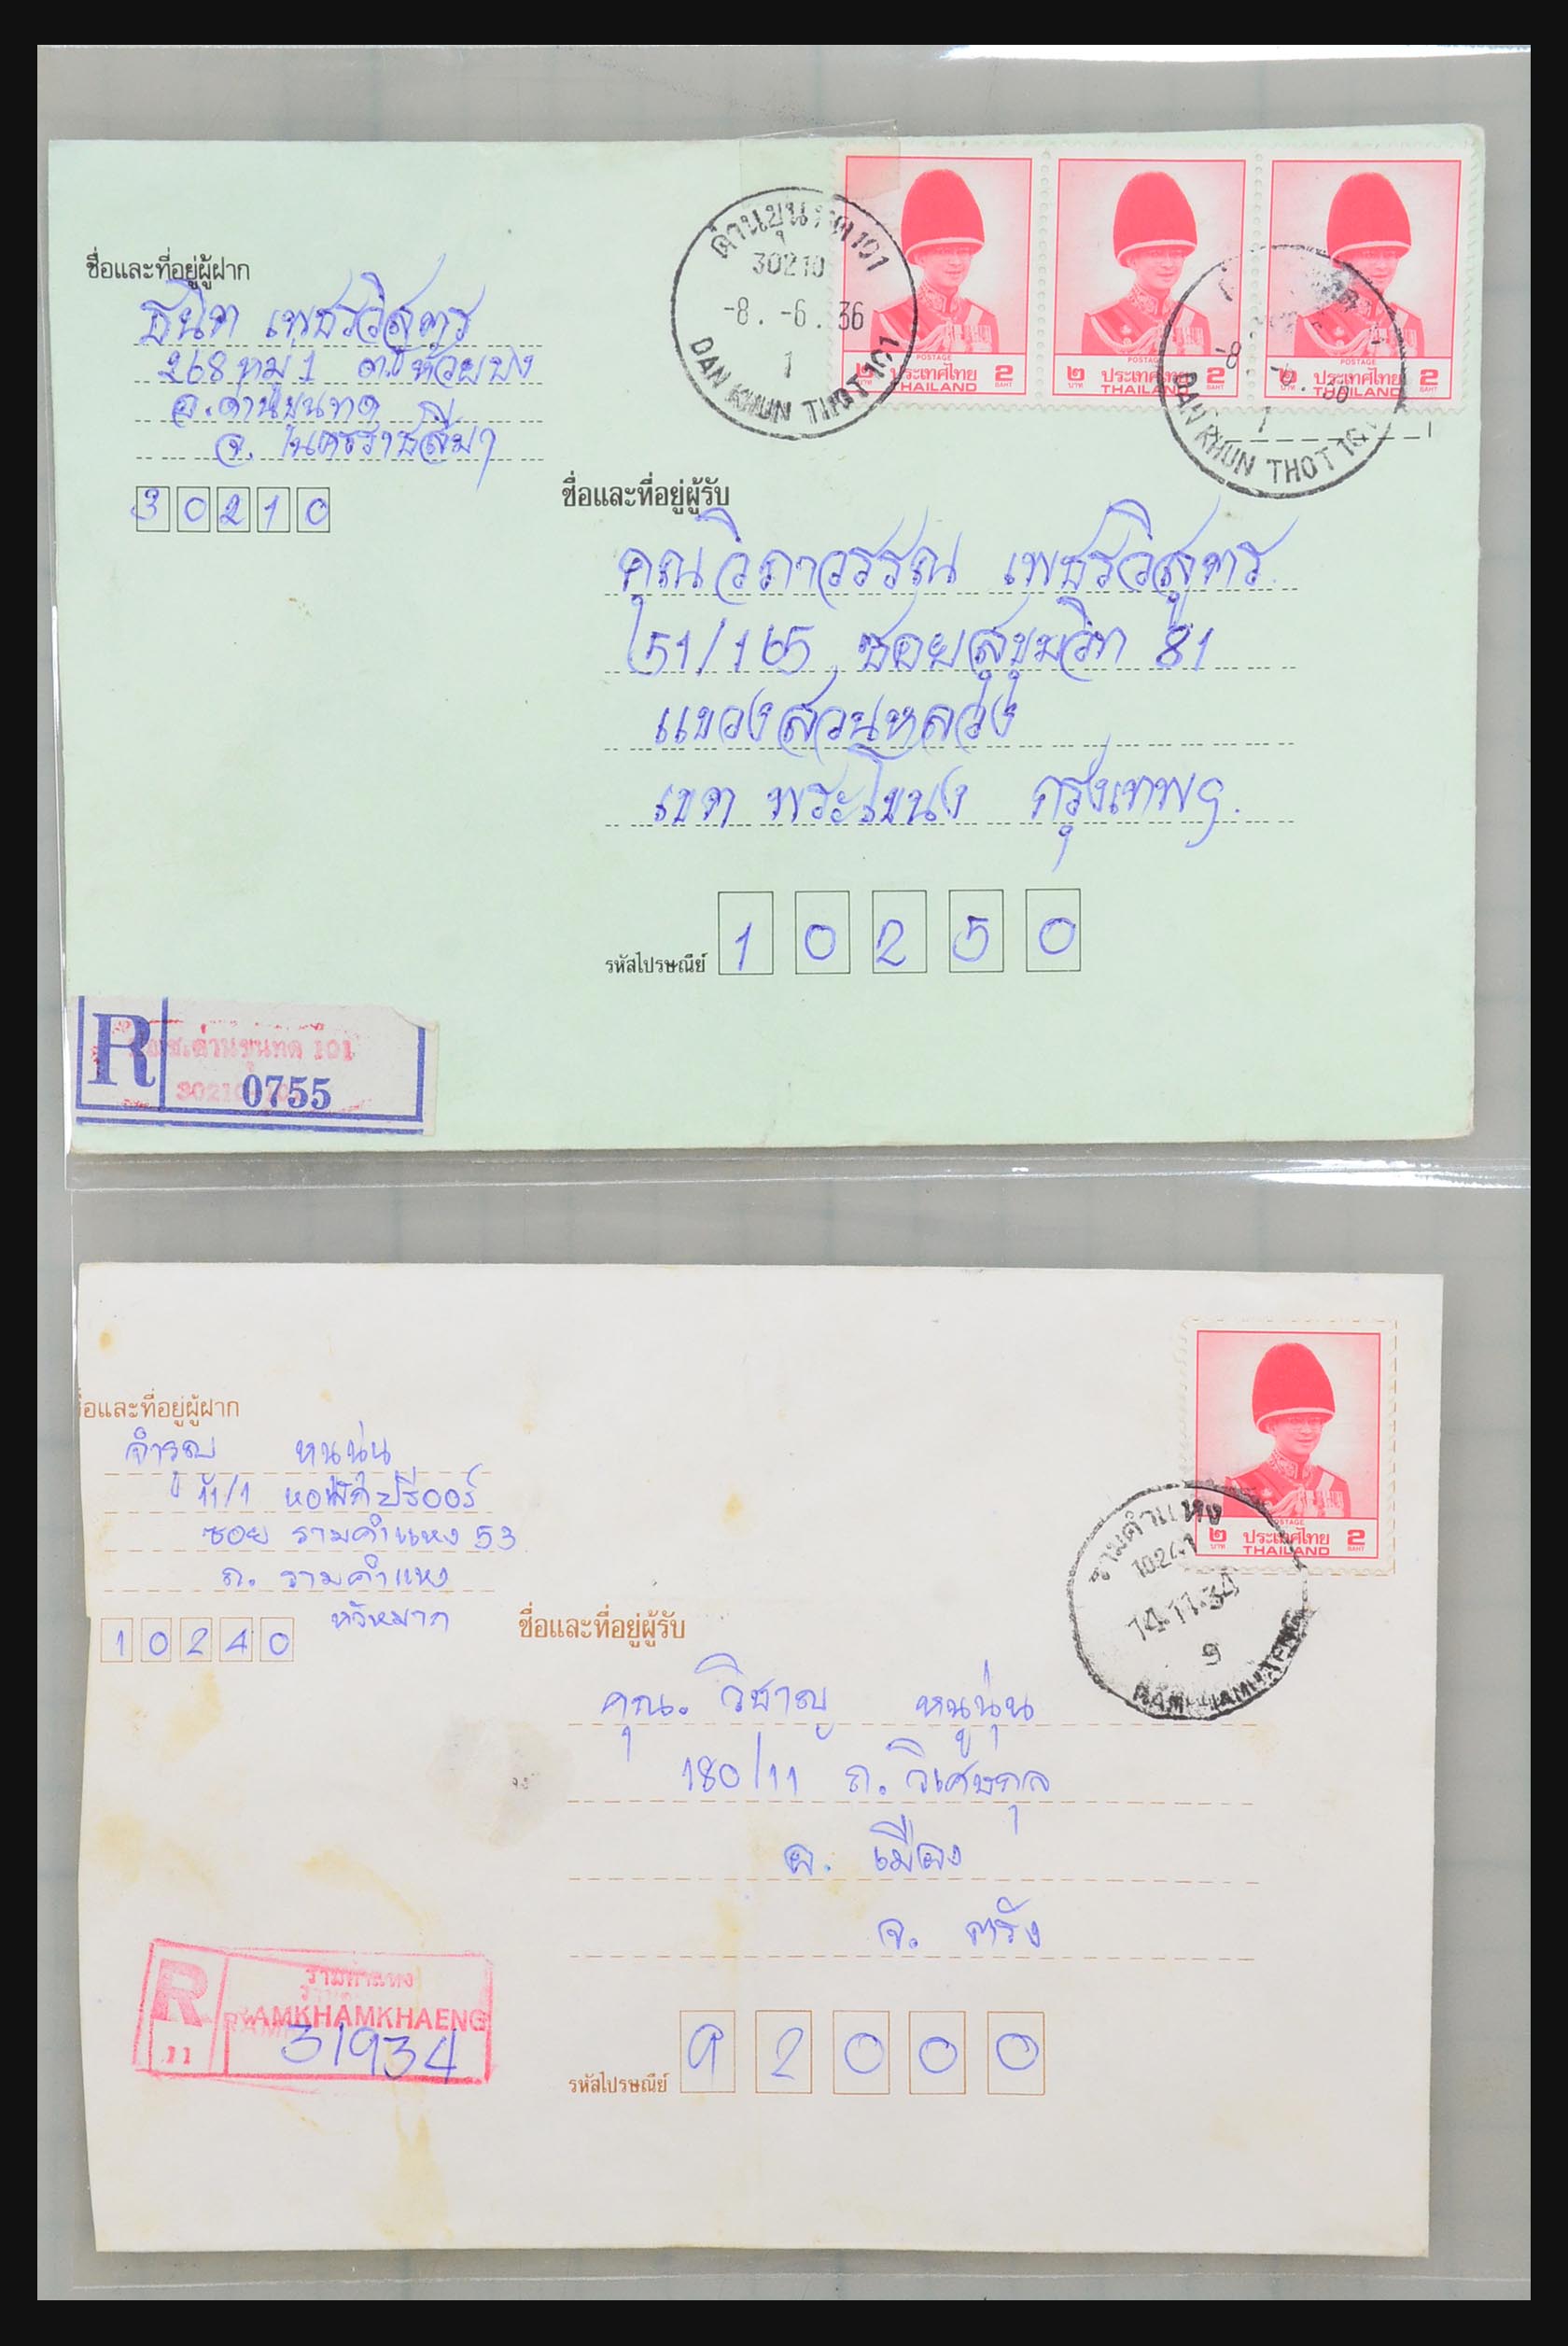 ชื่อและที่อยู่ผู้ฝาก
ธนิต เพชรวิสูตร
268 หมู่ 1 ต. ห้วยบง
อ.ด่านขุนทด
จ. นครราชสีมา
30210
ด่านขุนทด 101
30210
-8. -6. 36
1
DAN KHUN THOT 101
POSTAGE
๒ บาท ประเทศไทย 2 BAHT
THAILAND
POSTAGE
๒ บาท ประเทศไทย 2 BAHT
THAILAND
POSTAGE
๒ บาท ประเทศไทย 2 BAHT
THAILAND
-8. -6. 36
1
DAN KHUN THOT 101
ชื่อและที่อยู่ผู้รับ
คุณวิภาวรรณ เพชรวิสูตร
51/165 ซอยสุขุมวิท 81
แขวงสวนหลวง
เขต พระโขนง กรุงเทพฯ.
รหัสไปรษณีย์ 10250
R
ด่านขุนทด 101
30210
0755
ชื่อและที่อยู่ผู้ฝาก
จำรูญ หนูนุ่น
11/1 หอพัก
ซอย รามคำแหง 53
ถ. รามคำแหง
หัวหมาก
10240
POSTAGE
๒ บาท ประเทศไทย 2 BAHT
THAILAND
รามคำแหง
10241
14.11.34
9
RAMKHAMHAENG
ชื่อและที่อยู่ผู้รับ
คุณ. วิชาญ หนูนุ่น
180/11 ถ. วิเศษกุล
อ. เมือง
จ. ตรัง
R
11
รามคำแหง
RAMKHAMKHAENG
31934
รหัสไปรษณีย์ 92000